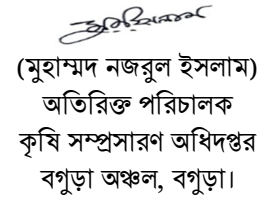 (মুহাম্মদ নজরুল ইসলাম)
অতিরিক্ত পরিচালক
কৃষি সম্প্রসারণ অধিদপ্তর
বগুড়া অঞ্চল, বগুড়া।